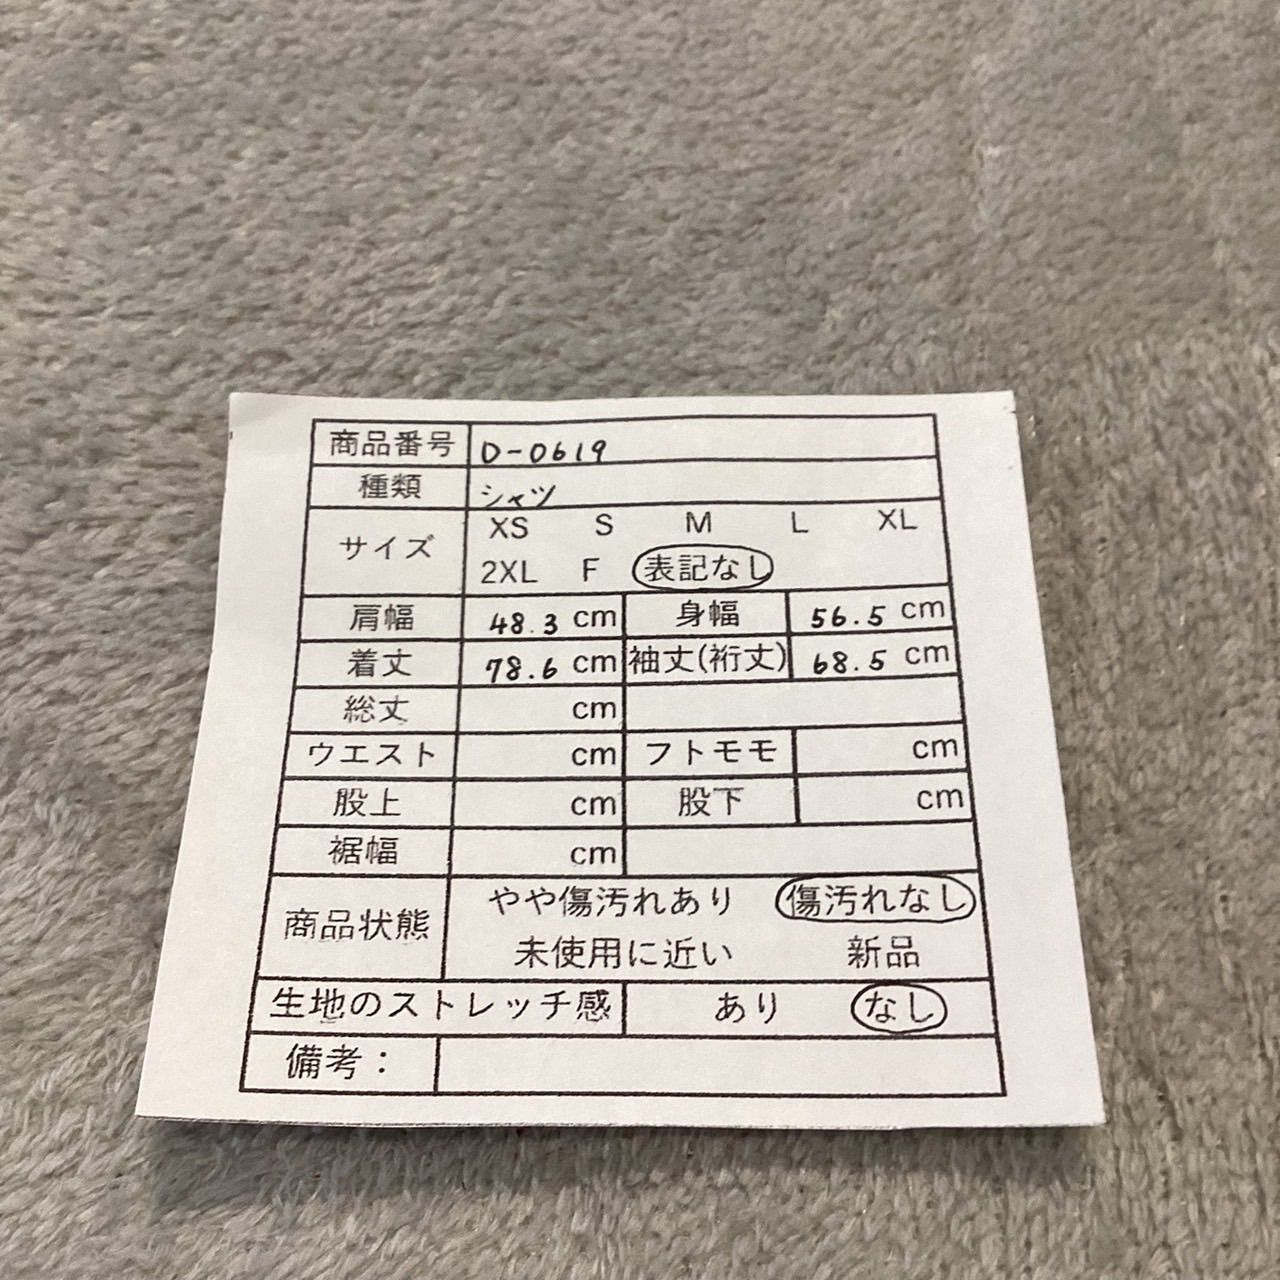 商品番号 D-0619
種類 シャツ
サイズ XS S M L XL
2XL F 表記なし
肩幅 48.3 cm 身幅 56.5 cm
着丈 78.6 cm 袖丈(裄丈) 68.5 cm
総丈 cm
ウエスト cm フトモモ cm
股上 cm 股下 cm
裾幅 cm
商品状態 やや傷汚れあり 傷汚れなし
未使用に近い 新品
生地のストレッチ感 あり なし
備考：